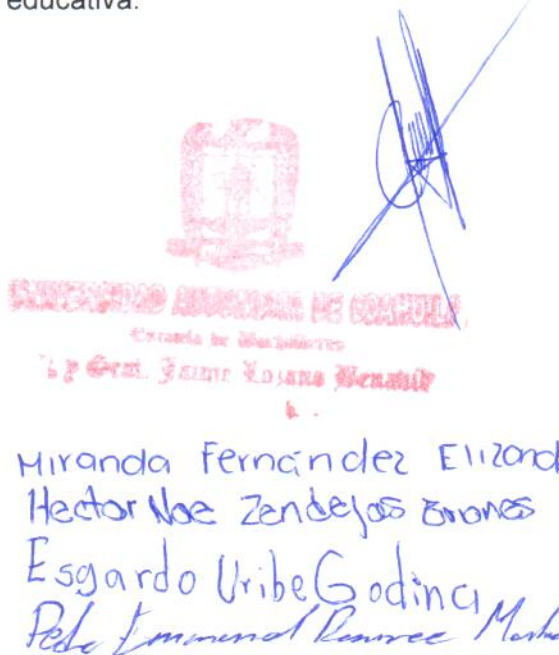 educativa.
UNIVERSIDAD AUTONOMA DE COAHUILA
Escuela de Bachilleres
y Gral. Jaime Lozano Benavides
Miranda Fernández Elizond
Hector Noe Zendejas Briones
Esgardo Uribe Godina
Pedro Emmanuel Ramirez